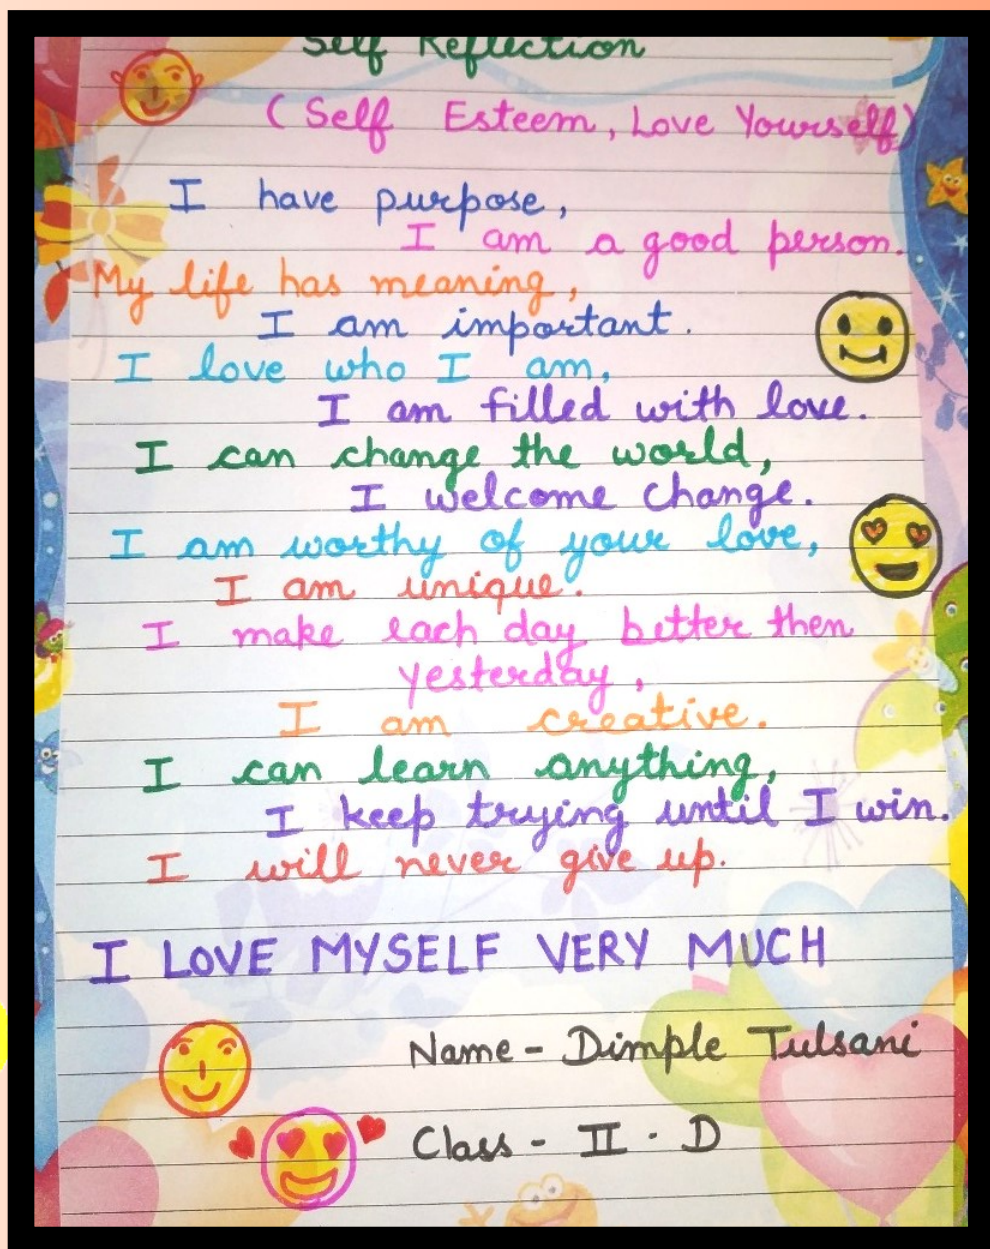 Self Reflection
(Self Esteem, Love Yourself)
I have purpose,
I am a good person.
My life has meaning,
I am important.
I love who I am,
I am filled with love.
I can change the world,
I welcome change.
I am worthy of your love,
I am unique.
I make each day better then
yesterday,
I am creative.
I can learn anything,
I keep trying until I win.
I will never give up.
I LOVE MYSELF VERY MUCH
Name - Dimple Tulsani
Class - II . D